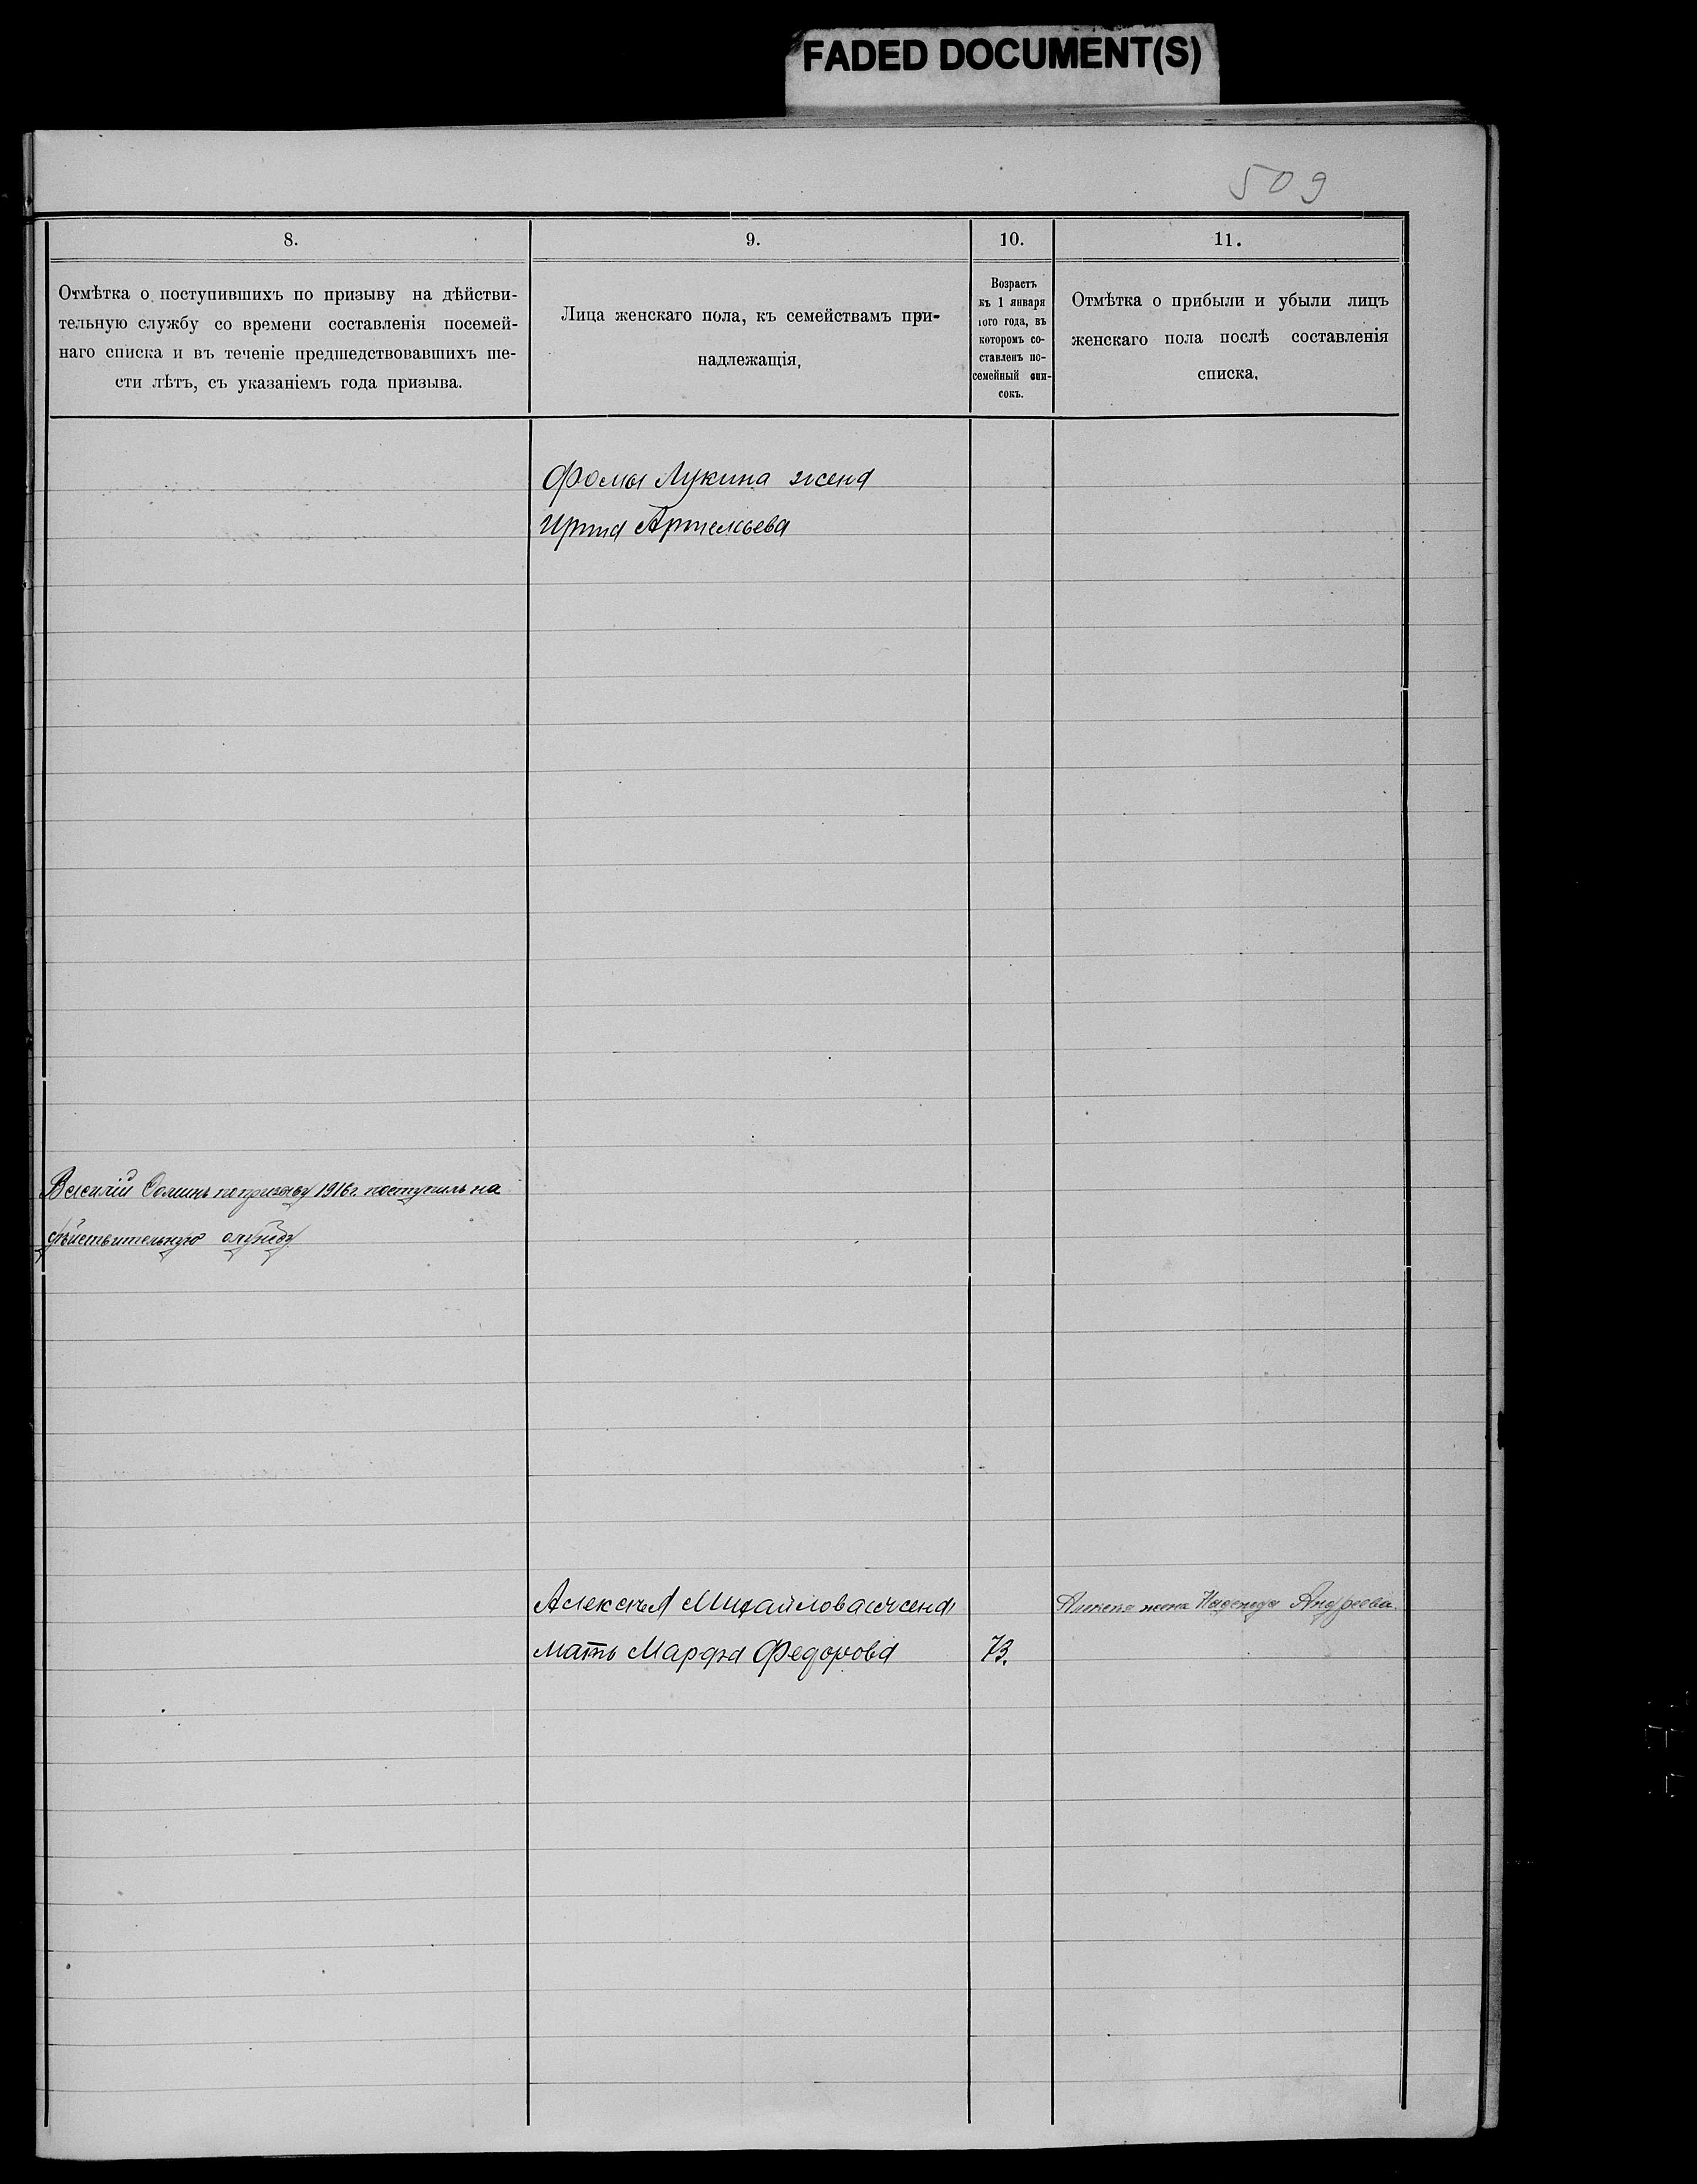 FADED DOCUMENT(S)
509
8.
9.
10.
11.
Отмѣтка о поступившихъ по призыву на дѣйстви-
тельную службу со времени составленія посемей-
наго списка и въ теченіе предшедствовавшихъ ше-
сти лѣтъ, съ указаніемъ года призыва.
Лица женскаго пола, къ семействамъ при-
надлежащія,
Возрастъ
къ 1 января
того года, въ
которомъ со-
ставленъ по-
семейный спи-
сокъ.
Отмѣтка о прибыли и убыли лицъ
женскаго пола послѣ составленія
списка,
Фомы Лукина жена
Ирина Артемьева
Василій по призыву 1916 г. поступилъ на
дѣйствительную службу
Алексѣя Михайлова жена
жена Надежда Андреева.
Мать Марфа Федорова
73.